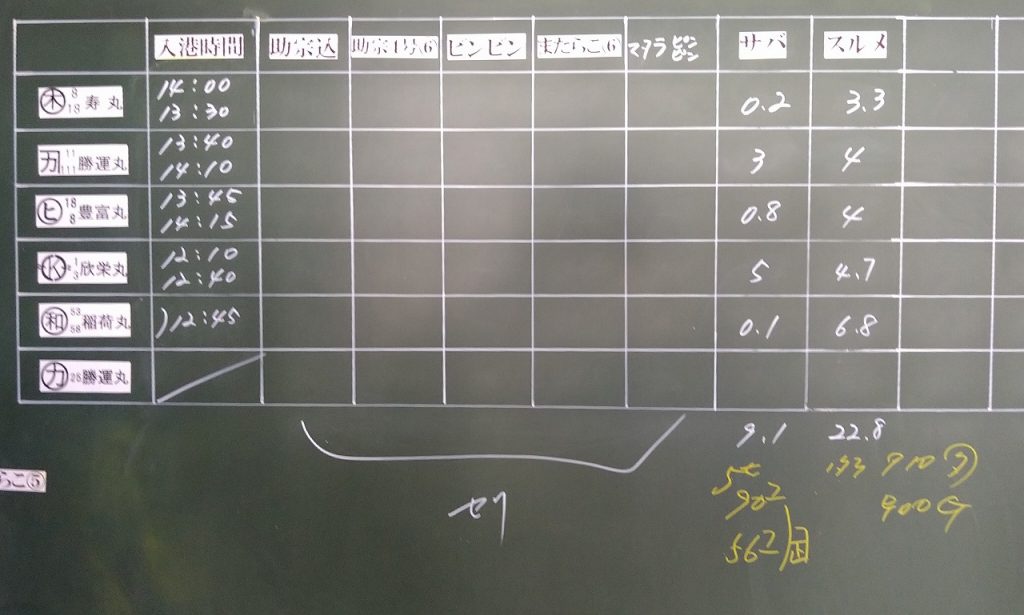 入港時間 助宗込 助宗1号⑹ ピンピン またらこ⑹ マダラ ピンピン サバ スルメ
木 8 18 寿丸 14:00 13:30 0.2 3.3
カ 11 111 勝運丸 13:40 14:10 3 4
ヒ 18 8 豊富丸 13:45 14:15 0.8 4
K 1 3 欣栄丸 12:10 12:40 5 4.7
和 53 58 稲荷丸 )12:45 0.1 6.8
カ 25 勝運丸
9.1 22.8
らこ⑤
セリ